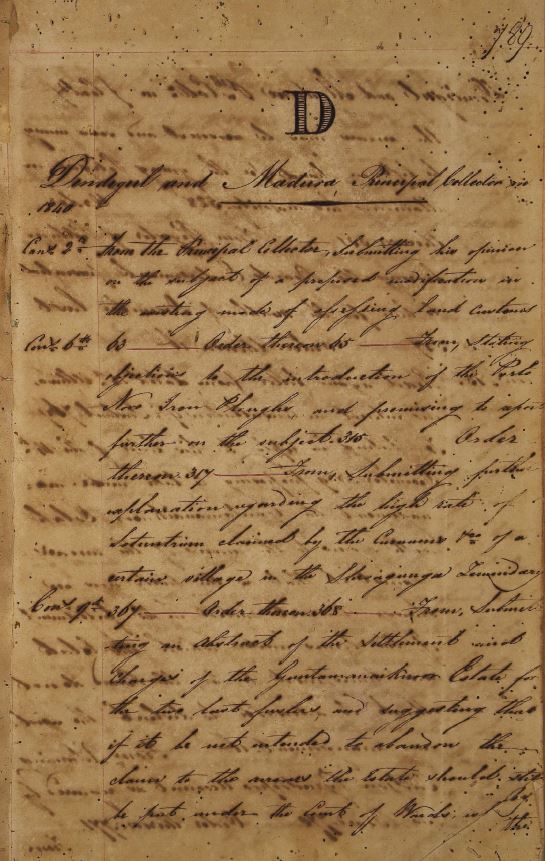 789
D
Dindegul and Madura Principal Collector in
1840
Cons. 2d From the Principal Collector, Submitting his opinion
on the subject of a proposed modification in
the existing mode of assessing Land Customs
Cons. 6th 63 Order thereon 65 From, Stating
objections to the introduction of the Porto
Novo Iron Ploughs, and promising to report
further on the subject. 315 Order
thereon 317 From, Submitting further
explanation regarding the high rate of
claimed by the Curnums &ca of a
certain village in the Shevagunga Zemindary
Cons. 9th 367 Order thereon 368 From, Submit
ting an Abstract of the Settlement and
Charges of the Estate for
the two last fuslies, and suggesting that
if it be not intended to abandon the
claim to the arrears the Estate should still
be put under the Court of Wards, if
the